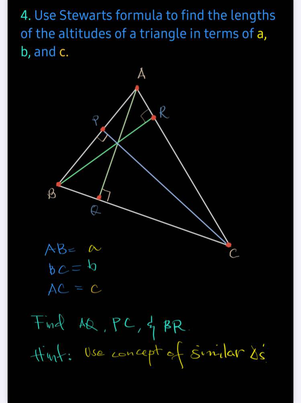 4. Use Stewarts formula to find the lengths
of the altitudes of a triangle in terms of a,
b, and c.
A
P
R
B
Q
C
AB= a
BC= b
AC = c
Find AQ, PC, & BR
Hint: Use concept of similar Δs